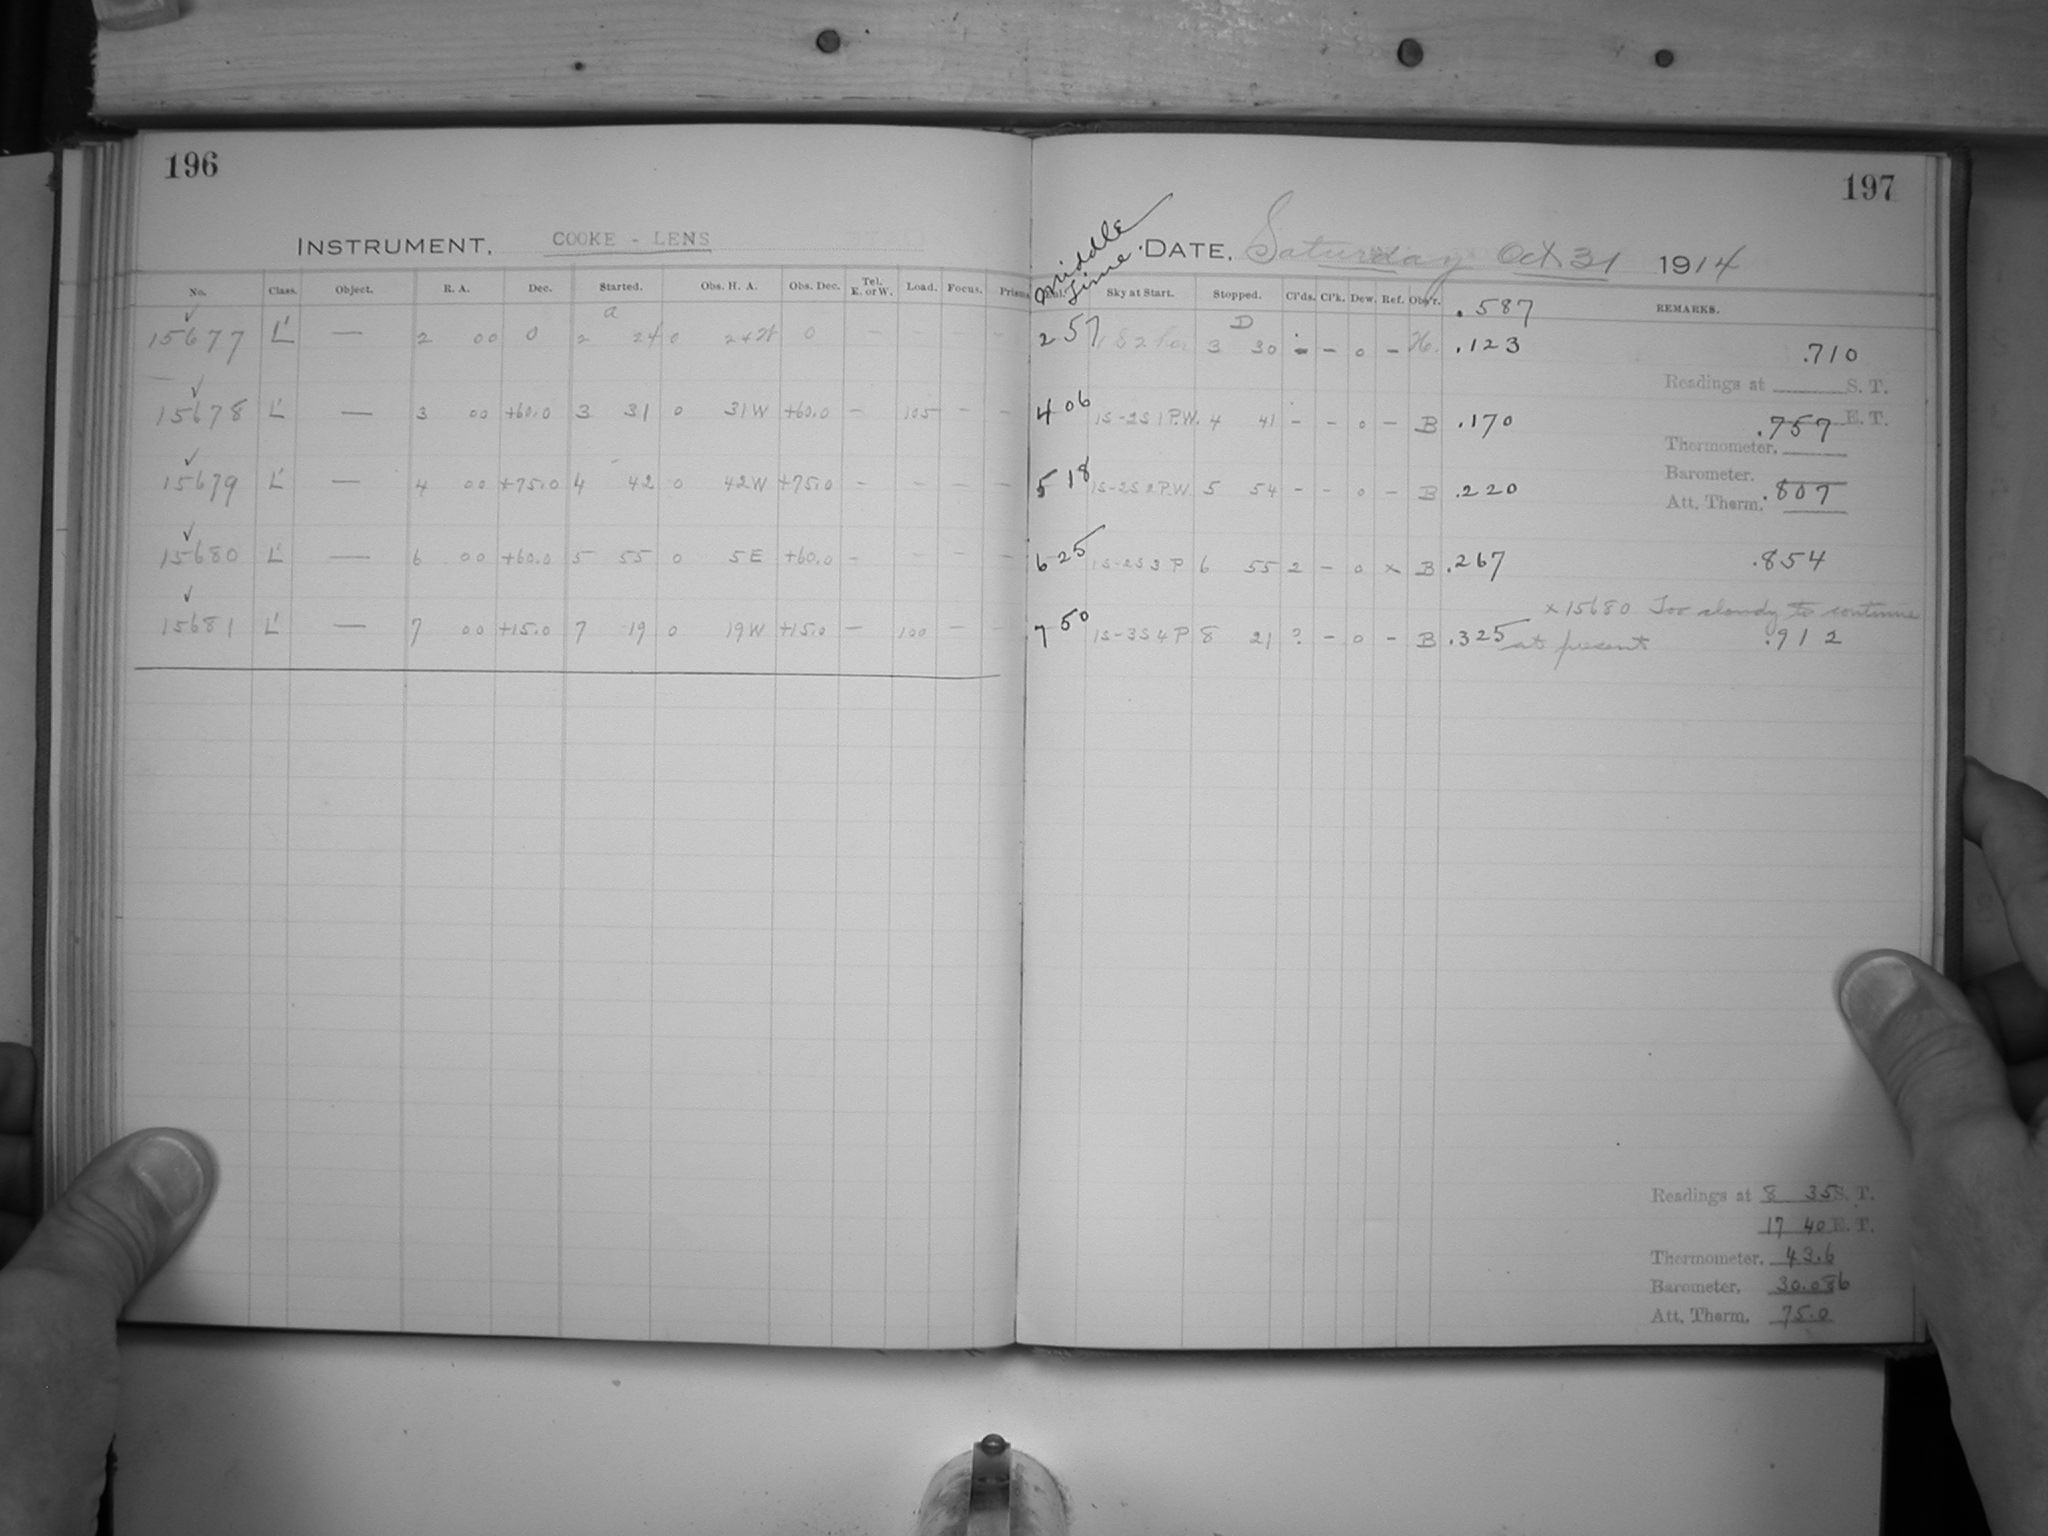 196
INSTRUMENT, COOKE - LENS
No. Class. Object. R. A. Dec. Started. Obs. H. A. Obs. Dec. Tel. E. or W. Load. Focus. Prism
a
✓
15677 L' — 2 00 0 2 24 0 24W 0 — — — —
✓
15678 L' — 3 00 +60.0 3 31 0 31W +60.0 — 105 — —
✓
15679 L' — 4 00 +75.0 4 42 0 42W +75.0 — — — —
✓
15680 L' — 6 00 +60.0 5 55 0 5E +60.0 — — — —
✓
15681 L' — 7 00 +15.0 7 19 0 19W +15.0 — 100 — —
197
Middle Time
DATE, Saturday Oct 31 1914
Sky at Start. Stopped. Cl'ds. Cl'k. Dew. Ref. Obs'r. .587 REMARKS.
D
2 57 3 30 - - 0 - H. .123 .710
Readings at S. T.
4 06 1S-2S 1 P.W. 4 41 - - 0 - B .170 .757 E. T.
Thermometer.
Barometer.
5 18 1S-2S 2 P.W 5 54 - - 0 - B .220 Att. Therm. .807
6 25 1S-2S 3 P 6 55 2 - 0 x B .267 .854
x 15680 Too cloudy to continue
7 50 1S-3S 4 P 8 21 ? - 0 - B .325 at present .912
Readings at 8 35 S. T.
17 40 E. T.
Thermometer, 43.6
Barometer, 30.086
Att. Therm. 75.0